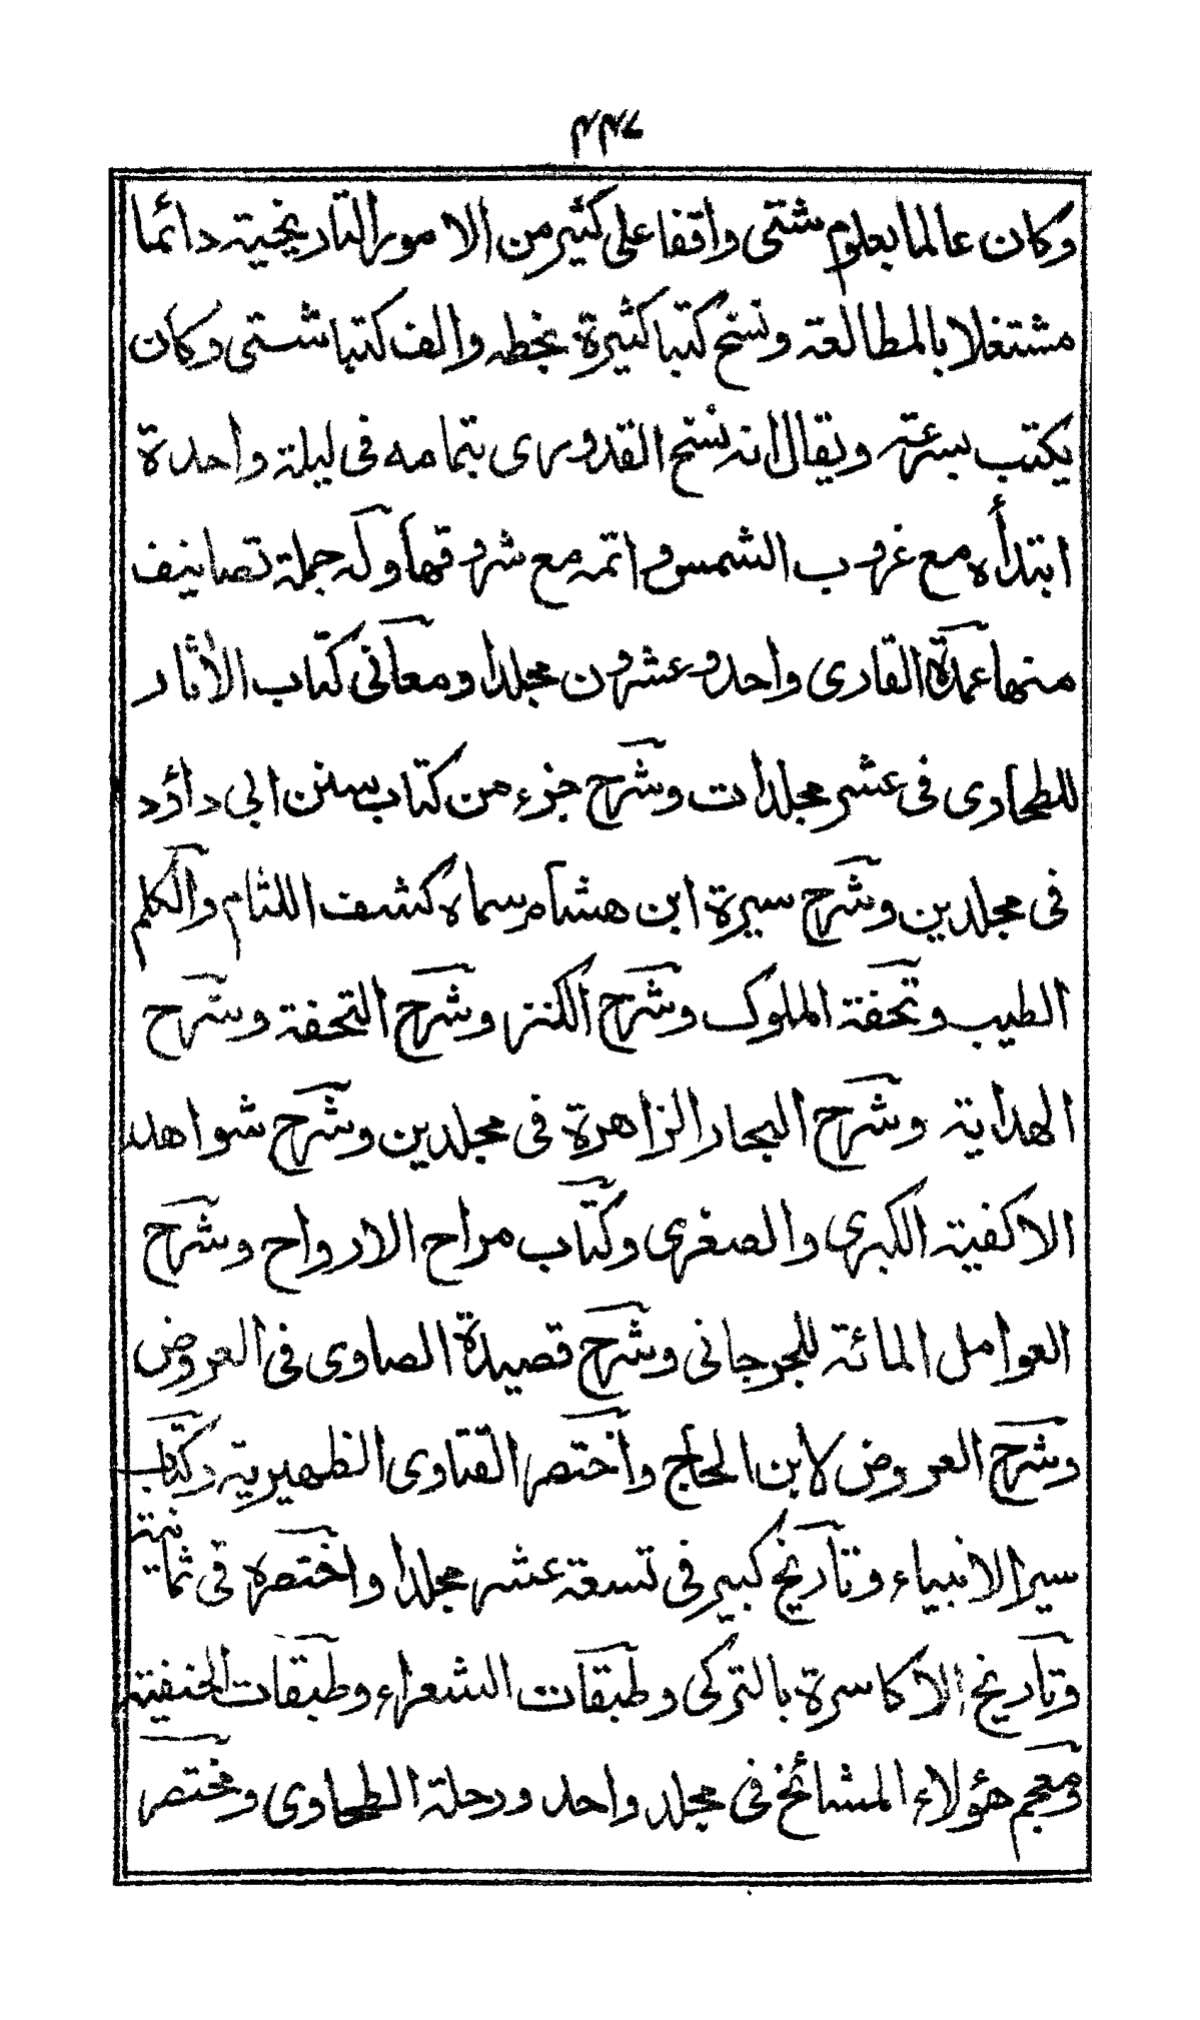 ۲۲۶
وكان عالما بعلوم شتى واقفا على كثير من الامور التاريخية دائما
مشتغلا بالمطالعة ونسخ كتبا كثيرة بخطه والف كتبا شتى وكان
يكتب بسرعة ويقال انه نسخ القدورى بتمامه فى ليلة واحدة
ابتدأه مع غروب الشمس واتمه مع شروقها وله جملة تصانيف
منها عمدة القارى واحد وعشرون مجلدا ومعانى كتاب الأثار
للطحاوى فى عشر مجلدات وشرح جزء من كتاب سنن ابى داؤد
فى مجلدين وشرح سيرة ابن هشام سماه كشف اللثام والكلم
الطيب وتحفة الملوك وشرح الكنز وشرح التحفة وشرح
الهداية وشرح البحار الزاهرة فى مجلدين وشرح شواهد
الاكفية الكبرى والصغرى وكتاب مراح الارواح وشرح
العوامل المائة للجرجانى وشرح قصيدة الصاوى فى العروض
وشرح العروض لابن الحاج واختصر الفتاوى الظهيرية وكتاب
سير الانبياء وتاريخ كبير فى تسعة عشر مجلدا واختصره فى ثمانية
وتاريخ الاكاسرة بالتركى وطبقات الشعراء وطبقات الحنفية
ومعجم هؤلاء المشائخ فى مجلد واحد ورحلة الطحاوى ومختصر